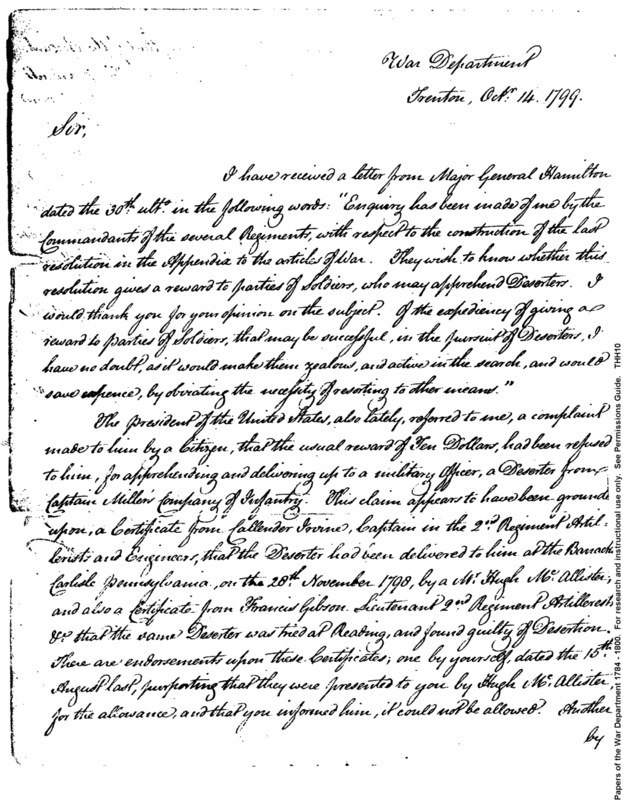 War Department
Trenton, Octr. 14. 1799.
Sir,
I have received a letter from Major General Hamilton
dated the 30th. ulto. in the following words: "Enquiry has been made of me by the
Commandants of the several Regiments, with respect to the construction of the last
resolution in the Appendix to the articles of War. They wish to know whether this
resolution gives a reward to parties of Soldiers, who may apprehend Deserters. I
would thank you for your opinion on the subject. Of the expediency of giving a
reward to parties of Soldiers, that may be successful, in the pursuit of Deserters, I
have no doubt, as it would make them zealous, and active in the search, and would
save expence, by obviating the necessity of resorting to other means."
The president of the United States, also lately, referred to me, a complaint
made to him by a Citizen, that the usual reward of Ten Dollars, had been refused
to him, for apprehending and delivering up to a military officer, a Deserter from
Captain Miller's Company of Infantry. This claim appears to have been grounde
upon, a Certificate from Callender Irvine, Captain in the 2nd. Regiment Artil-
lerist and Engineers, that the Deserter had been delivered to him at the Barrack
Carlisle Pennsylvania, on the 28th. November 1798, by a Mr. Hugh Mc. Allister;
and also a Certificate from Francis Gibson Lieutenant 2nd Regiment Artillerests
&c. that the same Deserter was tried at Reading, and found guilty of Desertion.
There are endorsements upon these Certificates; one by yourself, dated the 15th.
August last, purporting that they were presented to you by Hugh Mc. Allister,
for the allowance, and that you informed him, it could not be allowed. Another
by
Papers of the War Department 1784 - 1800. For research and instructional use only. See Permissions Guide. THH10